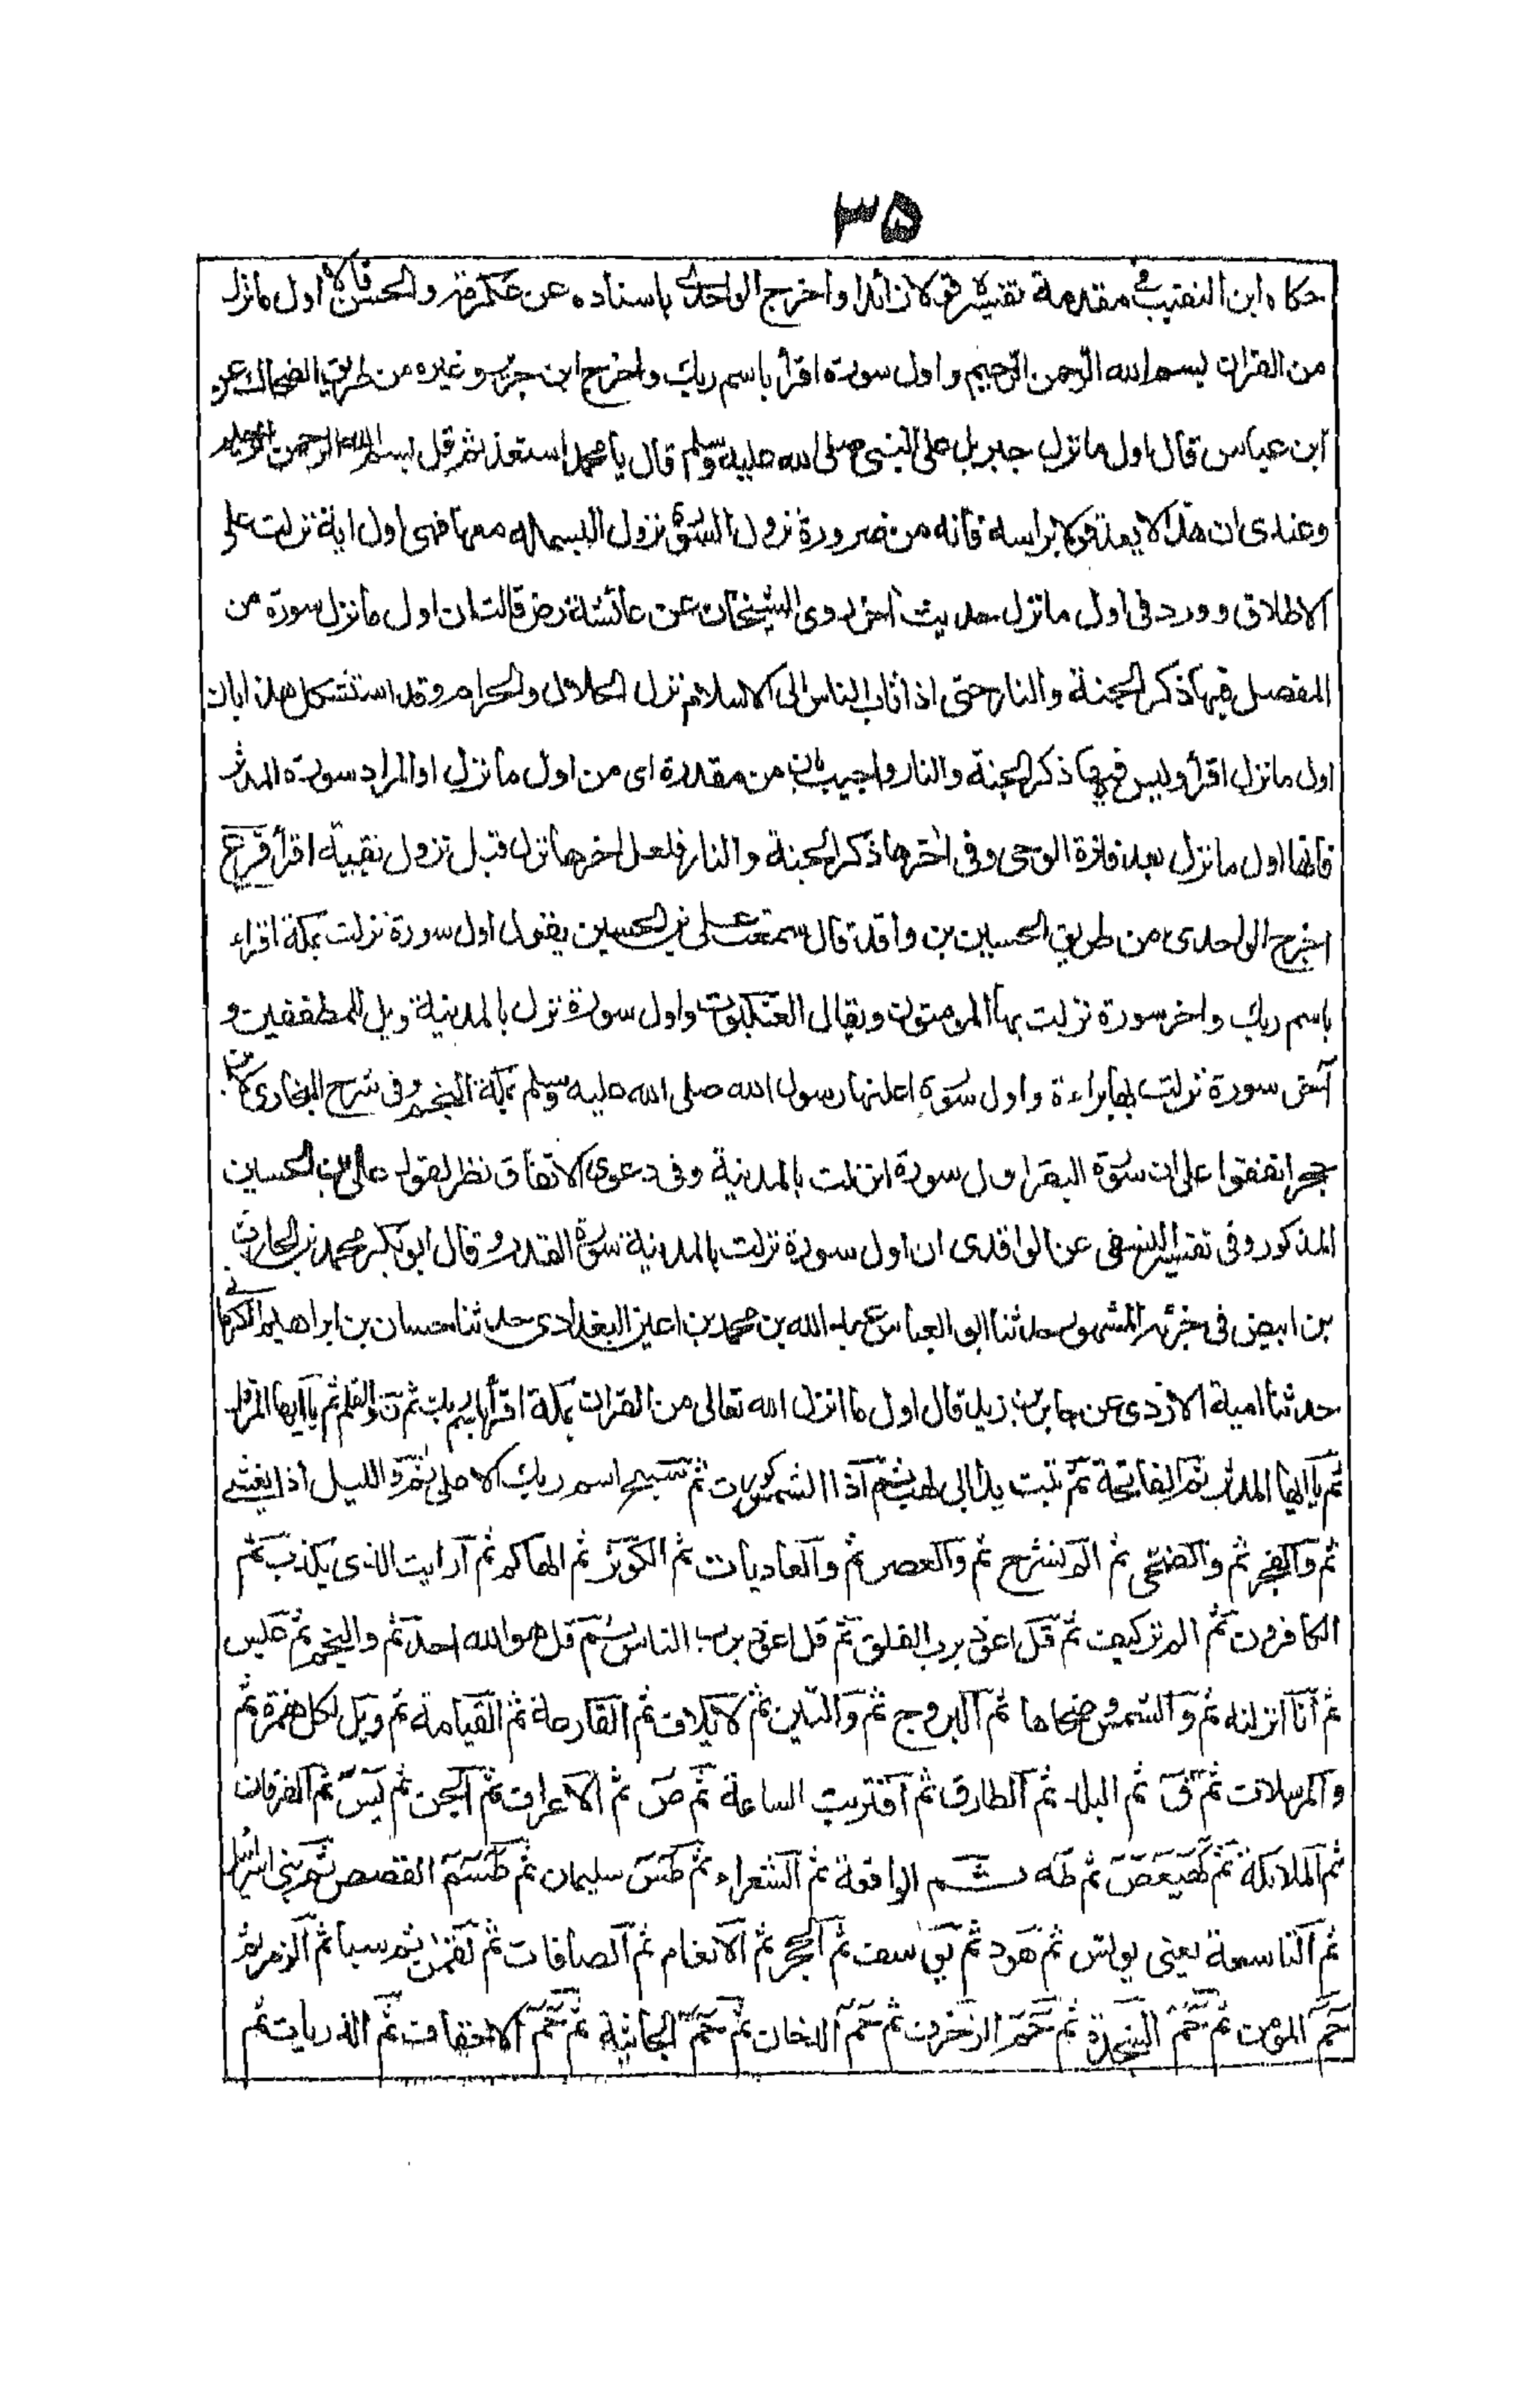 ۳۵
حكاه ابن النقيب في مقدمة تفسيره قولا زائدا واخرج الواحدي باسناده عن عكرمة والحسن قالا اول ما نزل
من القران بسم الله الرحمن الرحيم واول سورة اقرأ باسم ربك واخرج ابن جرير وغيره من طريق الضحاك عن
ابن عباس قال اول ما نزل جبريل على النبي صلى الله عليه وسلم قال يا محمد استعذ ثم قل بسم الله الرحمن الرحيم
وعندى ان هذا لا يعد قولا براسه فانه من ضرورة نزول السورة نزول البسملة معها فهى اول اية نزلت على
الاطلاق وورد فى اول ما نزل حديث اخر روى الشيخان عن عائشة رض قالت ان اول ما نزل سورة من
المفصل فيها ذكر الجنة والنار حتى اذا ثاب الناس الى الاسلام نزل الحلال والحرام وقد استشكل هذا بان
اول ما نزل اقرأ وليس فيها ذكر الجنة والنار واجيب بان من مقدرة اى من اول ما نزل او المراد سورة المدثر
فانها اول ما نزل بعد فترة الوحى وفى اخرها ذكر الجنة والنار فلعل اخرها نزل قبل نزول بقية اقرأ فرع
اخرج الواحدى من طريق الحسين بن واقد قال سمعت على بن الحسين يقول اول سورة نزلت بمكة اقراء
باسم ربك واخر سورة نزلت بها المومنون ويقال العنكبوت واول سورة نزل بالمدينة ويل للمطففين و
آخر سورة نزلت بها براءة واول سورة اعلنها رسول الله صلى الله عليه وسلم بمكة النجم وفى شرح البخارى لابن
حجر اتفقوا على ان سورة البقر اول سورة انزلت بالمدينة وفى دعوى الاتفاق نظر لقول على بن الحسين
المذكور وفى تفسير النسفى عن الواقدى ان اول سورة نزلت بالمدينة سورة القدر وقال ابو بكر محمد بن الحارث
بن ابيض فى جزئه المشهور حدثنا ابو العباس عبيد الله بن محمد بن اعين البغدادى حدثنا حسان بن ابراهيم الكرمانى
حدثنا امية الازدى عن جابر بن زيد قال اول ما انزل الله تعالى من القران بمكة اقرأ باسم ربك ثم ن والقلم ثم يا ايها المزمل
ثم يا ايها المدثر ثم الفاتحة ثم تبت يدا ابى لهب ثم اذا الشمس كورت ثم سبح اسم ربك الاعلى ثم والليل اذا يغشى
ثم والفجر ثم والضحى ثم الم نشرح ثم والعصر ثم والعاديات ثم الكوثر ثم الهاكم ثم ارايت الذى يكذب ثم
الكافرون ثم الم تر كيف ثم قل اعوذ برب الفلق ثم قل اعوذ برب الناس ثم قل هو الله احد ثم والنجم ثم عبس
ثم انا انزلنه ثم والشمس وضحاها ثم البروج ثم والتين ثم لايلاف ثم القارعة ثم القيامة ثم ويل لكل همزة ثم
والمرسلات ثم ق ثم البلد ثم الطارق ثم اقتربت الساعة ثم ص ثم الاعراف ثم الجن ثم يس ثم الفرقان
ثم الملائكة ثم كهيعص ثم طه ثم الواقعة ثم الشعراء ثم طس سليمان ثم طسم القصص ثم بنى اسرائيل
ثم التاسعة يعنى يونس ثم هود ثم يوسف ثم الحجر ثم الانعام ثم الصافات ثم لقمن ثم سبا ثم الزمر ثم
حم المومن ثم حم السجدة ثم حم الزخرف ثم حم الدخان ثم حم الجاثية ثم حم الاحقاف ثم الذريات ثم